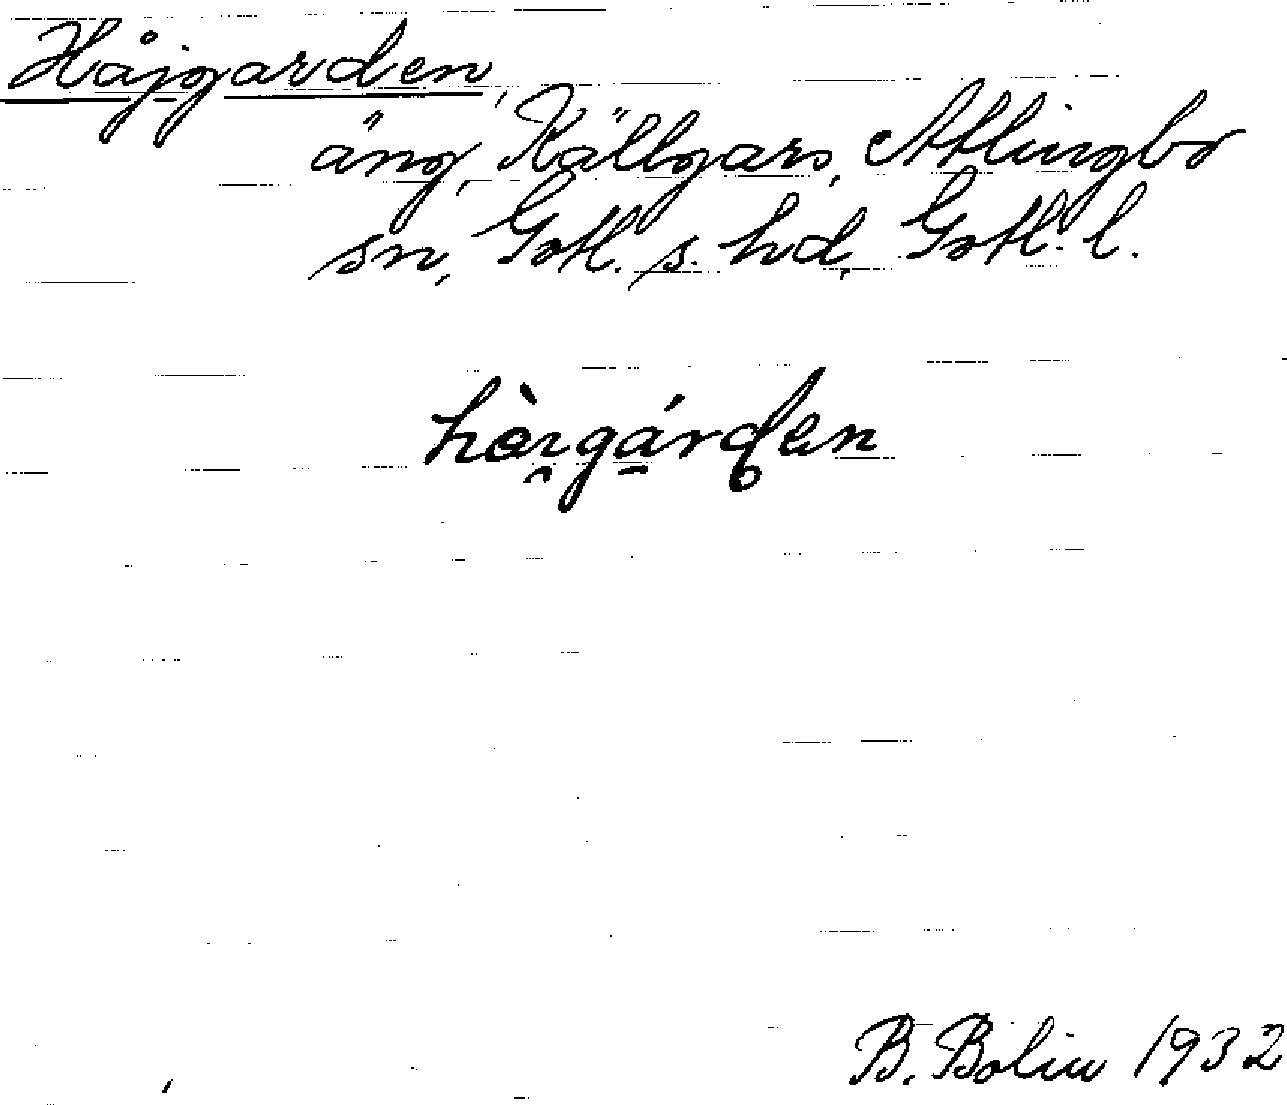 Håjgarden,
äng, Källgars, Atlingbo
sn, Gotl. s. hd, Gotl. l.
hòi̯gá̱rden
B. Bolin 1932